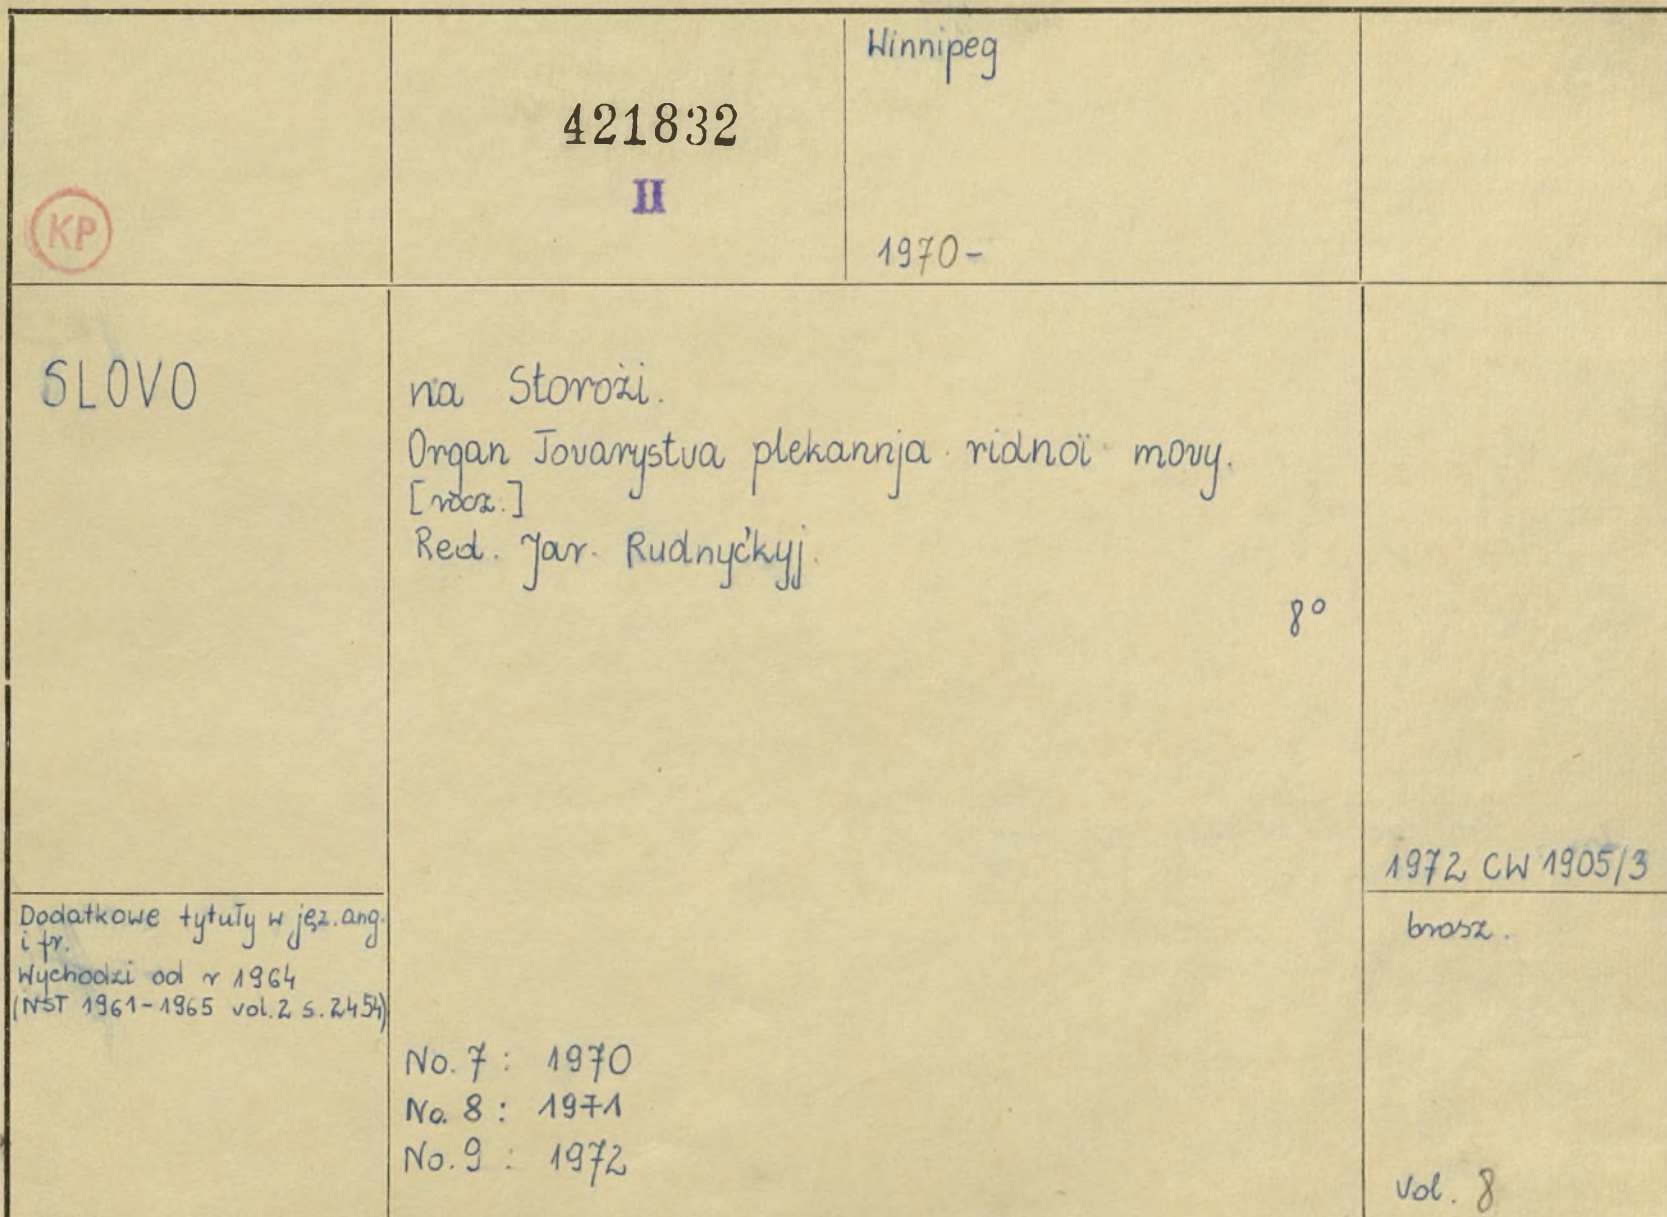 Winnipeg
421832
II
KP
1970-
SLOVO
na Storoži.
Organ Tovarystva plekannja ridnoï movy.
[rocz.]
Red. Jar. Rudnyćkyj.
8°
1972 CW 1905/3
Dodatkowe tytuły w jęz. ang.
i fr.
Wychodzi od r 1964
(NST 1961-1965 vol. 2 s. 2454)
brosz.
No. 7 : 1970
No. 8 : 1971
No. 9 : 1972
vol. 8